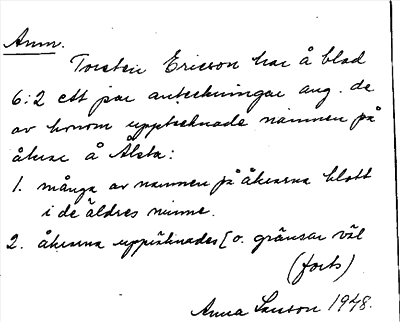 Anm.
Torsten Ericson har å blad
6:2 ett par anteckningar ang. de
av honom upptecknade namnen på
åkrar å Ålsta:
1. många av namnen på åkrarna blott
i de äldres minne.
2. åkrarna uppräknades [o. gränsar väl
(forts)
Anna Larson 1948.